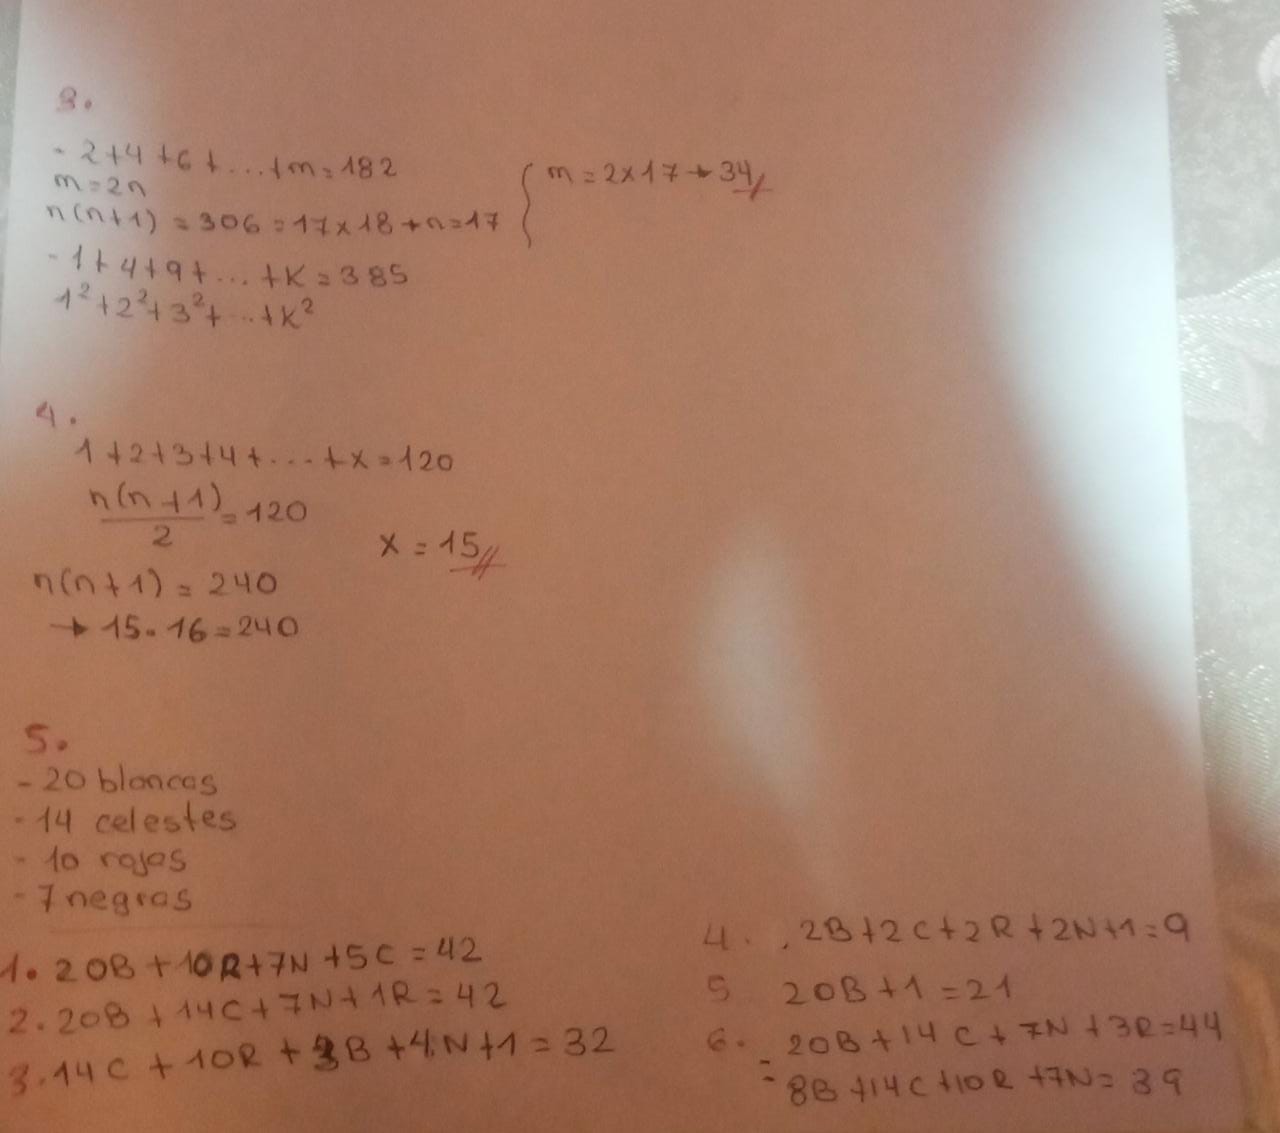 3.
- 2+4+6+...+m=182
m=2n
n(n+1)=306=17x18→n=17
m=2x17→34
- 1+4+9+...+K=385
1²+2²+3²+...+K²
4.
1+2+3+4+...+x=120
n(n+1)/2=120
x=15
n(n+1)=240
→15.16=240
5.
- 20 blancas
- 14 celestes
- 10 rojas
- 7 negras
1. 20B+10R+7N+5C=42
2. 20B+14C+7N+1R=42
3. 14C+10R+3B+4N+1=32
4. 2B+2C+2R+2N+1=9
5 20B+1=21
6. - 20B+14C+7N+3R=44
- 8B+14C+10R+7N=39